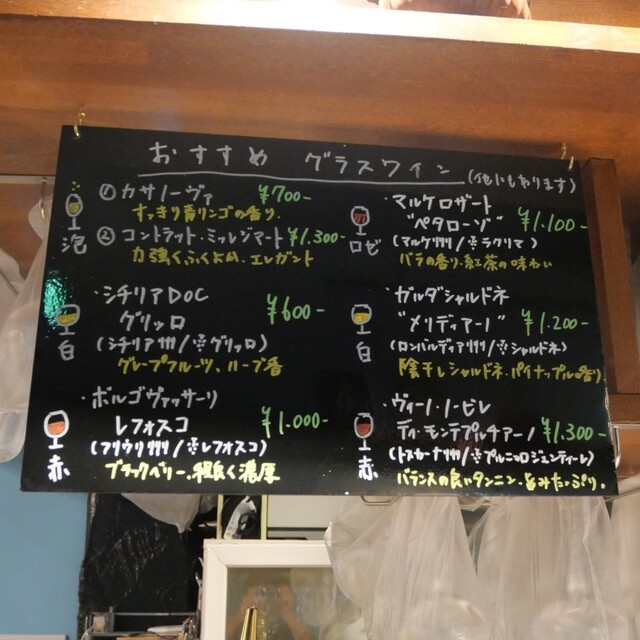 おすすめ グラスワイン (他にもあります)
泡
① カサノーヴァ ¥700-
すっきり青リンゴの香り.
② コントラット・ミッレジマート ¥1.300-
力強くふくよか、エレガント
白
・シチリアDOC
グリッロ ¥600-
(シチリア州/グリッロ)
グレープフルーツ、ハーブ香
赤
・ボルゴヴァッサーリ
レフォスコ ¥1.000-
(フリウリ州/レフォスコ)
ブラックベリー、程良く濃厚
ロゼ
・マルケロザート
"ペタローゾ" ¥1.100-
(マルケ州/ラクリマ)
バラの香り・紅茶の味わい
白
・ガルダシャルドネ
"メリディアーノ" ¥1.200-
(ロンバルディア州/シャルドネ)
陰干しシャルドネ、パイナップルの香り
赤
・ヴィーノ・ノービレ
ディ・モンテプルチアーノ ¥1.300-
(トスカーナ州/プルニョロジェンティーレ)
バランスの良いタンニン、うまみたっぷり.